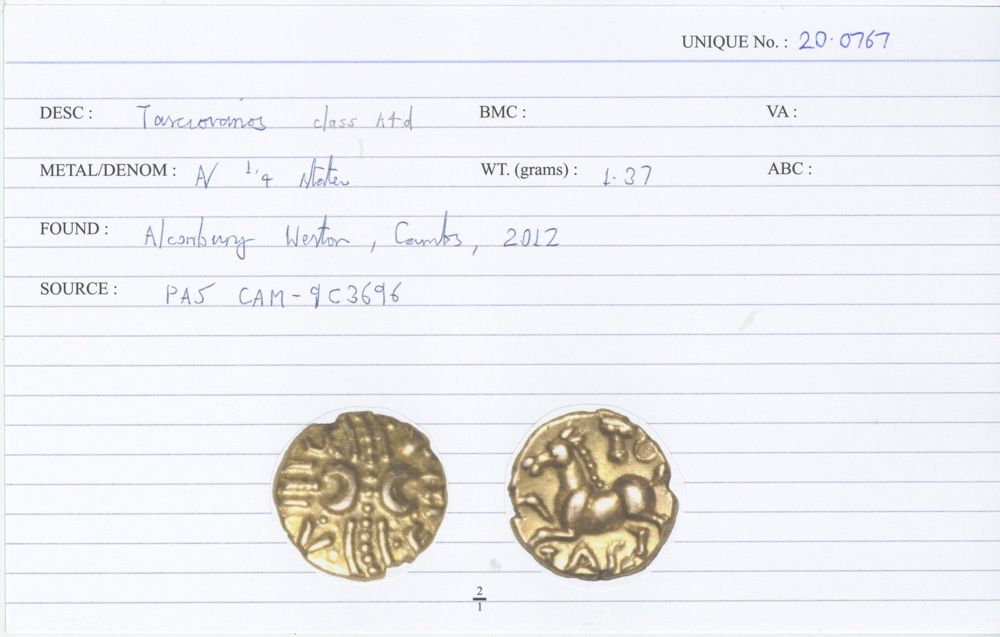 UNIQUE No. : 20.0767
DESC : Tasciovanos class A+d BMC : VA :
METAL/DENOM : AV 1/4 Stater WT. (grams) : 1.37 ABC :
FOUND : Alconbury Weston, Cambs, 2012
SOURCE : PAS CAM-9C3696
V
TAS
2
1